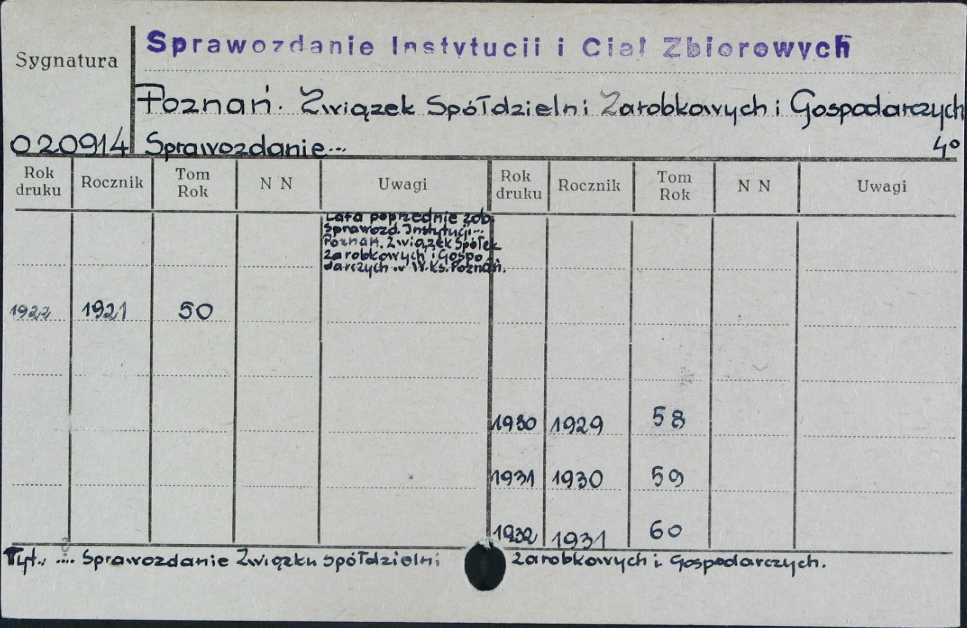 Sprawozdanie Instytucii i Ciał Zbiorowych
Sygnatura
Poznań. Związek Spółdzielni Zarobkowych i Gospodarczych
020914 Sprawozdanie... 4°
Rok druku Rocznik Tom Rok N N Uwagi Rok druku Rocznik Tom Rok N N Uwagi
Lata poprzednie zob.
Sprawozd. Instytucji...
Poznań. Związek Spółek
Zarobkowych i Gospo-
darczych w W.Ks. Poznań.
1922 1921 50
1930 1929 58
1931 1930 59
1932 1931 60
Tyt. .... Sprawozdanie Związku Spółdzielni Zarobkowych i Gospodarczych.